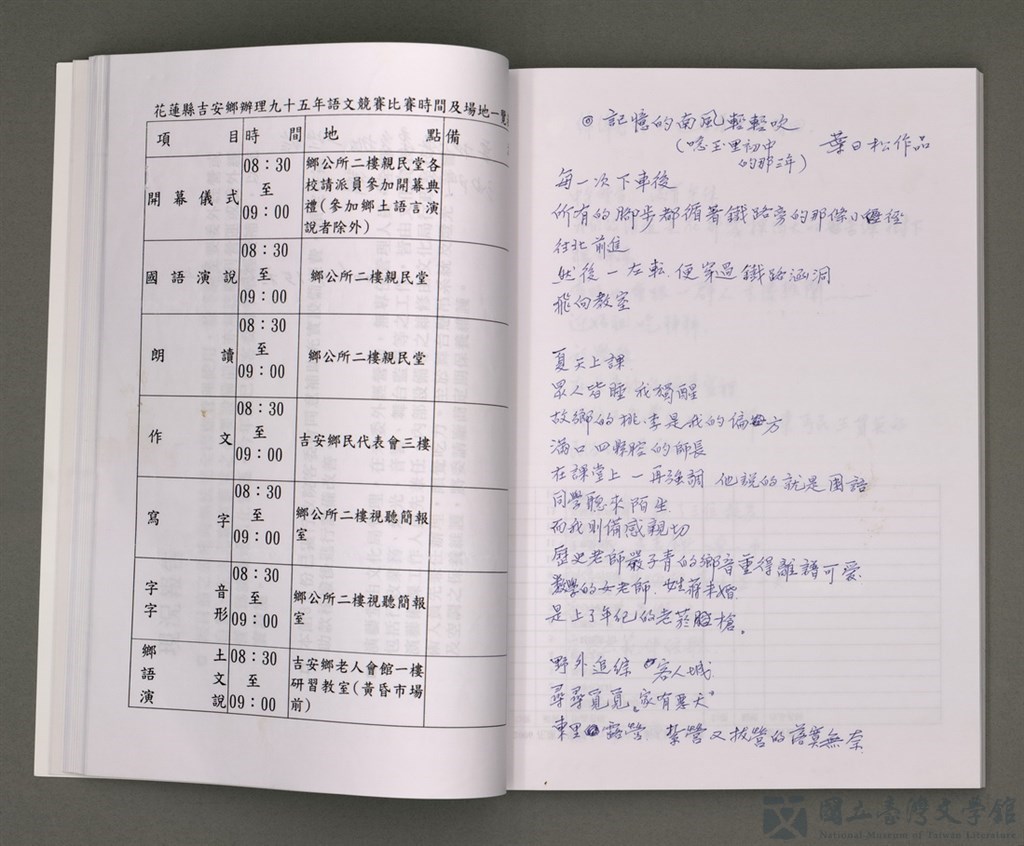 花蓮縣吉安鄉辦理九十五年語文競賽比賽時間及場地一覽
項目 時間 地點 備
開幕儀式 08：30至09：00 鄉公所二樓親民堂各
校請派員參加開幕典
禮(參加鄉土語言演
說者除外)
國語演說 08：30至09：00 鄉公所二樓親民堂
朗讀 08：30至09：00 鄉公所二樓親民堂
作文 08：30至09：00 吉安鄉民代表會三樓
寫字 08：30至09：00 鄉公所二樓視聽簡報
室
字音字形 08：30至09：00 鄉公所二樓視聽簡報
室
鄉土語文演說 08：30至09：00 吉安鄉老人會館一樓
研習教室(黃昏市場
前)
◎ 記憶的南風輕輕吹
(唸玉里初中
的那三年)
葉日松作品
每一次下車後
所有的腳步都循著鐵路旁的那條小徑
往北前進
然後一左転 便穿過鐵路涵洞
飛向教室
夏天上課
眾人皆睡 我獨醒
故鄉的桃李是我的偏方
滿口四縣腔的師長
在課堂上 一再強調 他說的就是國語
同學聽來陌生
而我則備感親切
歷史老師嚴子青的鄉音重得離譜可愛
數學的女老師 姓蔣未婚
是上了年紀的老菸槍。
野外追綜 "客人城"
尋尋覓覓"家有夏天"
東里露營 紮營又拔營的落寞無奈
國立臺灣文學館
National Museum of Taiwan Literature